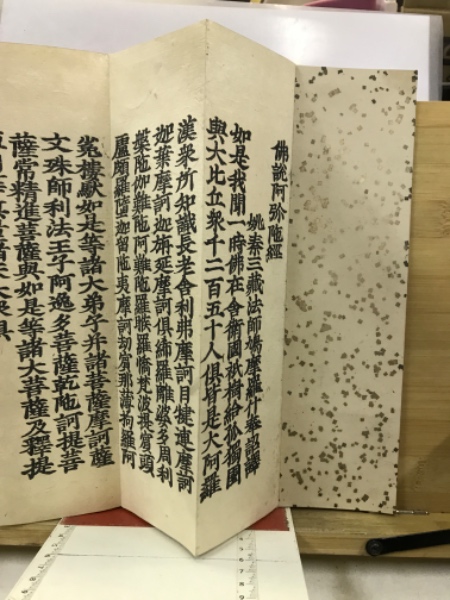 佛說阿弥陁經
姚秦三藏法師鳩摩羅什奉詔譯
如是我聞一時佛在舍衛國祇樹給孤獨園
與大比丘衆千二百五十人俱皆是大阿羅
漢衆所知識長老舍利弗摩訶目犍連摩訶
迦葉摩訶迦旃延摩訶俱絺羅離婆多周利
槃陁伽難陁阿難陁羅睺羅憍梵波提賓頭
盧頗羅墮迦留陁夷摩訶劫賓那薄拘羅阿
㝹樓馱如是等諸大弟子并諸菩薩摩訶薩
文殊師利法王子阿逸多菩薩乾陁訶提菩
薩常精進菩薩與如是等諸大菩薩及釋提
大衆俱